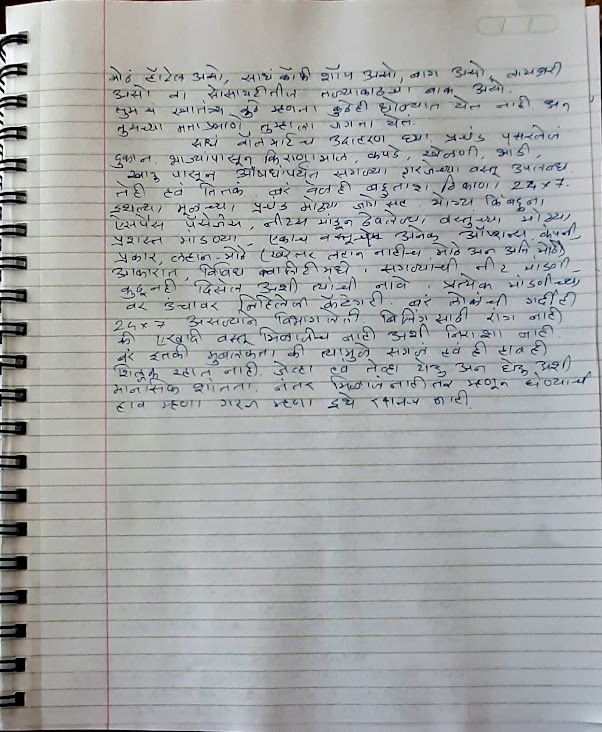 मोठं हॉटेल असो, साधं कॉफी शॉप असो, बाग असो, लायब्ररी
असो वा सोसायटीतील तळ्याकाठच्या बाक असो.
तुमचं स्वातंत्र्य कुठे म्हणजे कुठेही धोक्यात येत नाही. अन
तुमच्या मताप्रमाणे तुम्हाला जगता येतं.
साधं वॉलमार्टचं उदाहरण घ्या प्रचंड पसरलेलं
दुकान. भाज्यांपासून किराणा माल, कपडे, खेळणी, भांडी,
खाऊ पासून औषधांपर्यंत सगळ्या गरजेच्या वस्तू उपलब्ध.
तेही हवं तितकं. बरं वेळही बहुतांश ठिकाणी 24x7.
प्रचंड मोठ्या जागे सह. योग्य किंबहुना
ऐसपैस पॅसेजेस, नीटस मांडून ठेवलेल्या वस्तूंच्या मोठ्या,
प्रशस्त मांडण्या. एकाच वस्तूचे अनेक ऑप्शन्स, कंपनी,
प्रकार, लहान-मोठे (खरंतर लहान नाहीच. मोठे अन अति मोठे)
आकारात, विविध क्वालिटीमध्ये. सगळ्याची नीट मांडणी.
कुठूनही दिसेल अशी त्यांची नावे. प्रत्येक मांडणीच्या
वर उंचावर लिहिलेली कॅटेगरी. बरं लोकांची गर्दीही
24x7 असल्याने विभागलेली बिलिंगसाठी रांग नाही
की एखादी वस्तू मिळालीच नाही अशी निराशा नाही.
बरं इतकी मुबलकता की त्यामुळे सगळं हवं ही हावही
शिल्लक रहात नाही. जेव्हा हवं तेव्हा येऊ अन घेऊ अशी
मानसिक शांतता. नंतर मिळालं नाही तर म्हणून घेण्याची
हाव म्हणा गरज म्हणा इथे संभवत नाही.